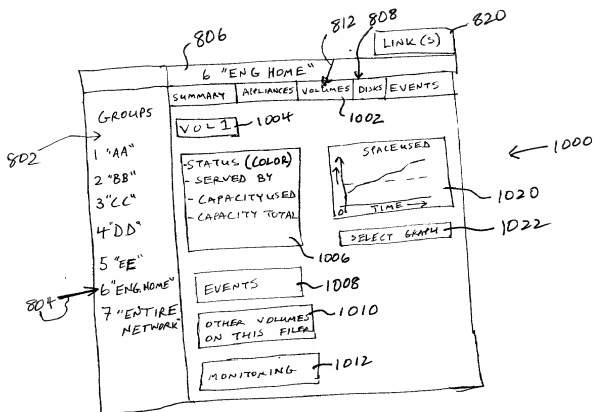 812
808
820
806
LINK(S)
6 "ENG HOME"
SUMMARY APPLIANCES VOLUMES DISKS EVENTS
GROUPS
VOL 1
1004
1002
802
1 "AA"
2 "BB"
3 "CC"
4 "DD"
5 "EE"
6 "ENG HOME"
7 "ENTIRE
NETWORK"
804
-STATUS (COLOR)
- SERVED BY
- CAPACITY USED
- CAPACITY TOTAL
1006
SPACE USED
0
TIME →
1000
1020
SELECT GRAPH
1022
EVENTS
1008
OTHER VOLUMES
ON THIS FILER
1010
MONITORING
1012